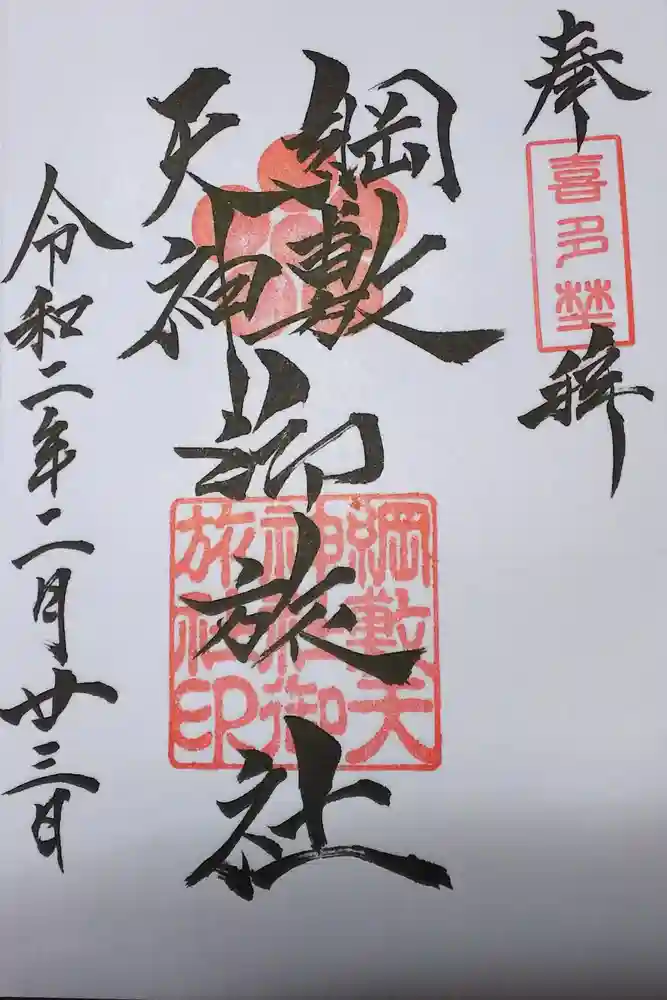 奉拝
喜多埜
綱敷
天神
御旅社
綱敷天
神社御
旅社印
令和二年二月廿三日